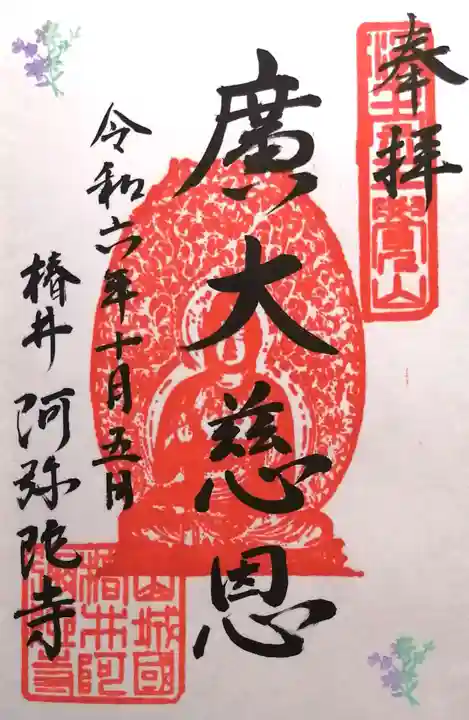 奉拝
廣大慈恩
令和六年十月五日
椿井 阿弥陀寺
山城國
椿井阿